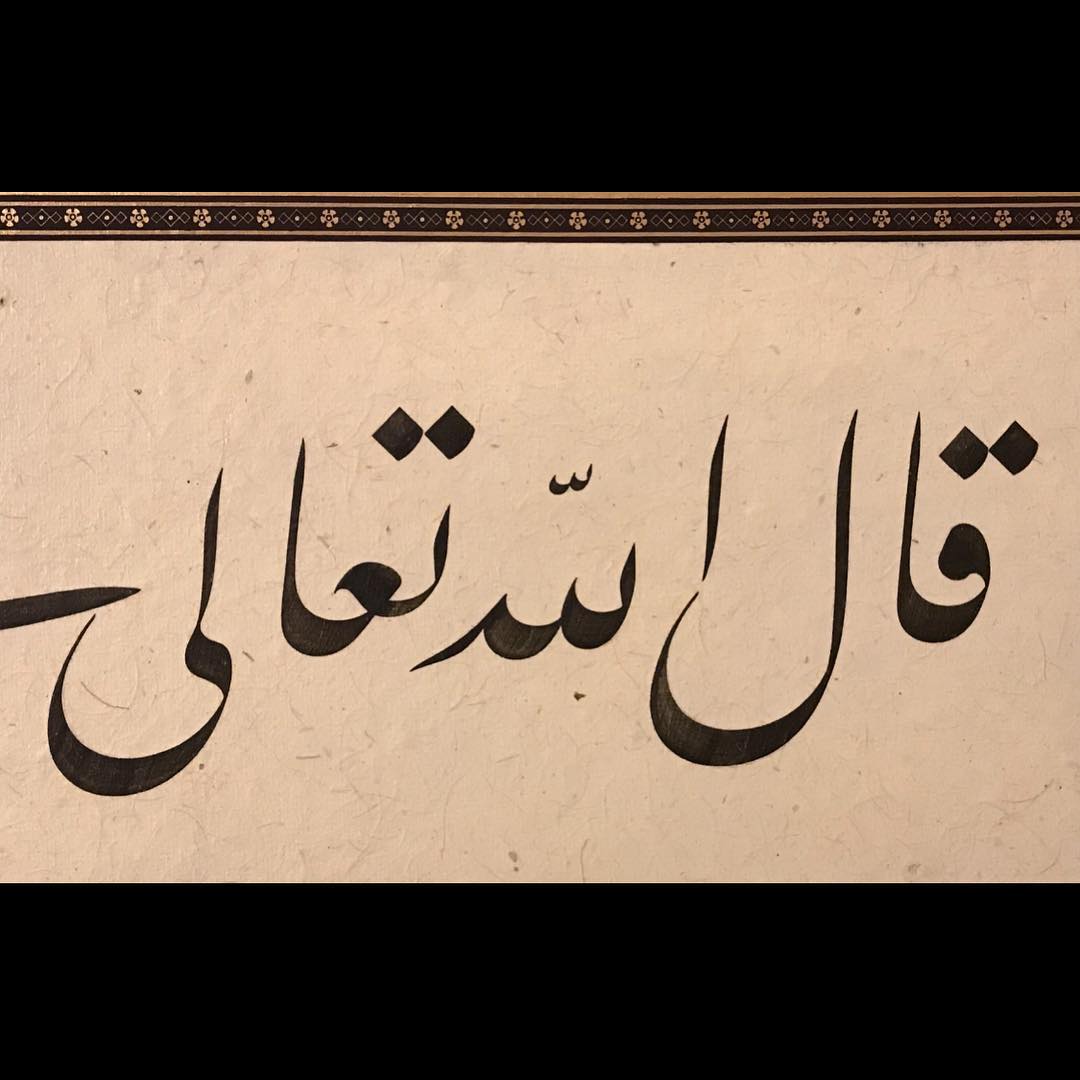 قال الله تعالى